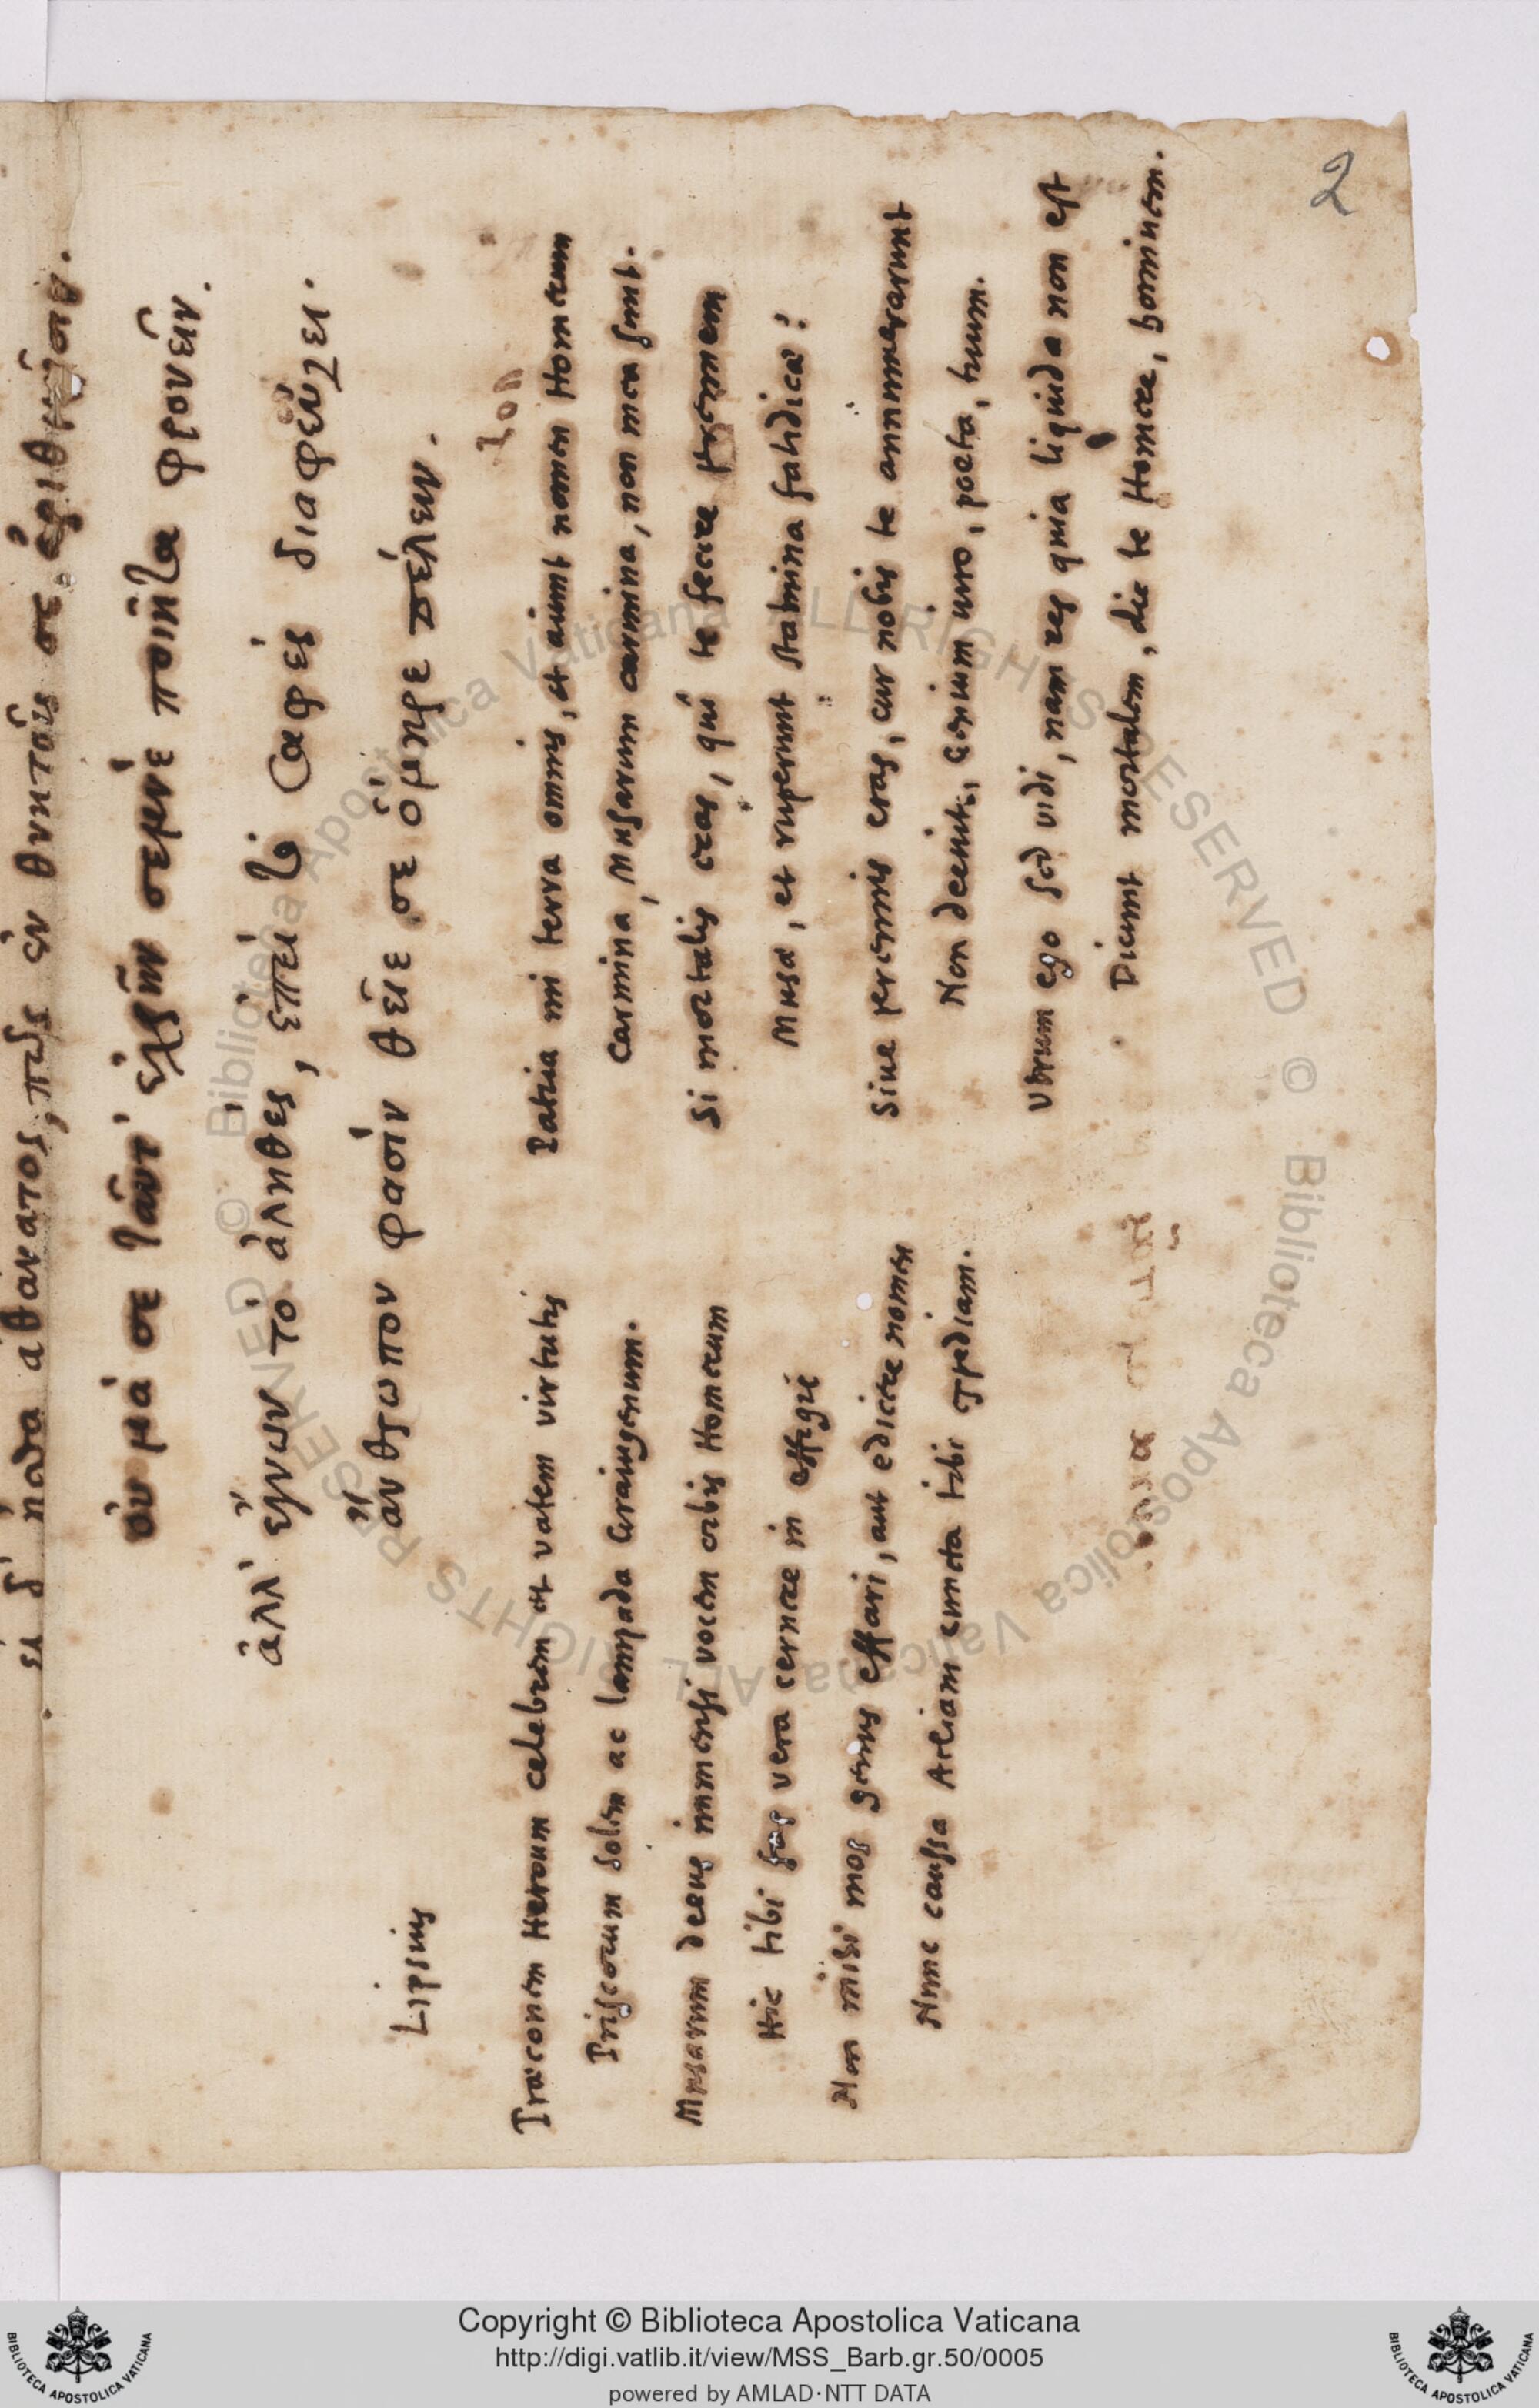 εἰ δ' πάλιν ἀθάνατος, πῶς ἐν θνητοῖς σε
οὐ μά σε ταῦτ' ἐχρῆν σεμνὲ ποιητὰ φρονεῖν.
ἀλλ' ἔγνων τὸ ἀληθὲς, ἐπεὶ τὸ σαφὲς διαφεύγει.
ἄνθρωπον φασὶν θεῖε σε ὅμηρε πέλειν.
Lipsius
Praeconem Heroum celebrem et vatem virtutis
Priscorum solem ac lampada Graiugenum.
Musarum decus immensi vocem orbis Homerum
Hic tibi fas vera cernere in effigie
Non mihi mos genus effari, aut edicere nomen
Nunc caussa Aeliam cuncta tibi expediam.
Patria mi terra omnis, et aiunt nomen Homerum
Carmina, Musarum carmina, non mea sunt.
Si mortalis eras, qui te fecere perennem
Musae, et ruperunt stamina fatidicae?
Sive perennis eras, cur nobis te annumerarunt
Non decuit, Genium uiro, poeta, tuum.
Verum ego sed vidi, nam res quia liquida non est
Dicunt mortalem, die te Homere, hominem.
2
Copyright © Biblioteca Apostolica Vaticana
http://digi.vatlib.it/view/MSS_Barb.gr.50/0005
powered by AMLAD·NTT DATA
BIBLIOTECA APOSTOLICA VATICANA
BIBLIOTECA APOSTOLICA VATICANA